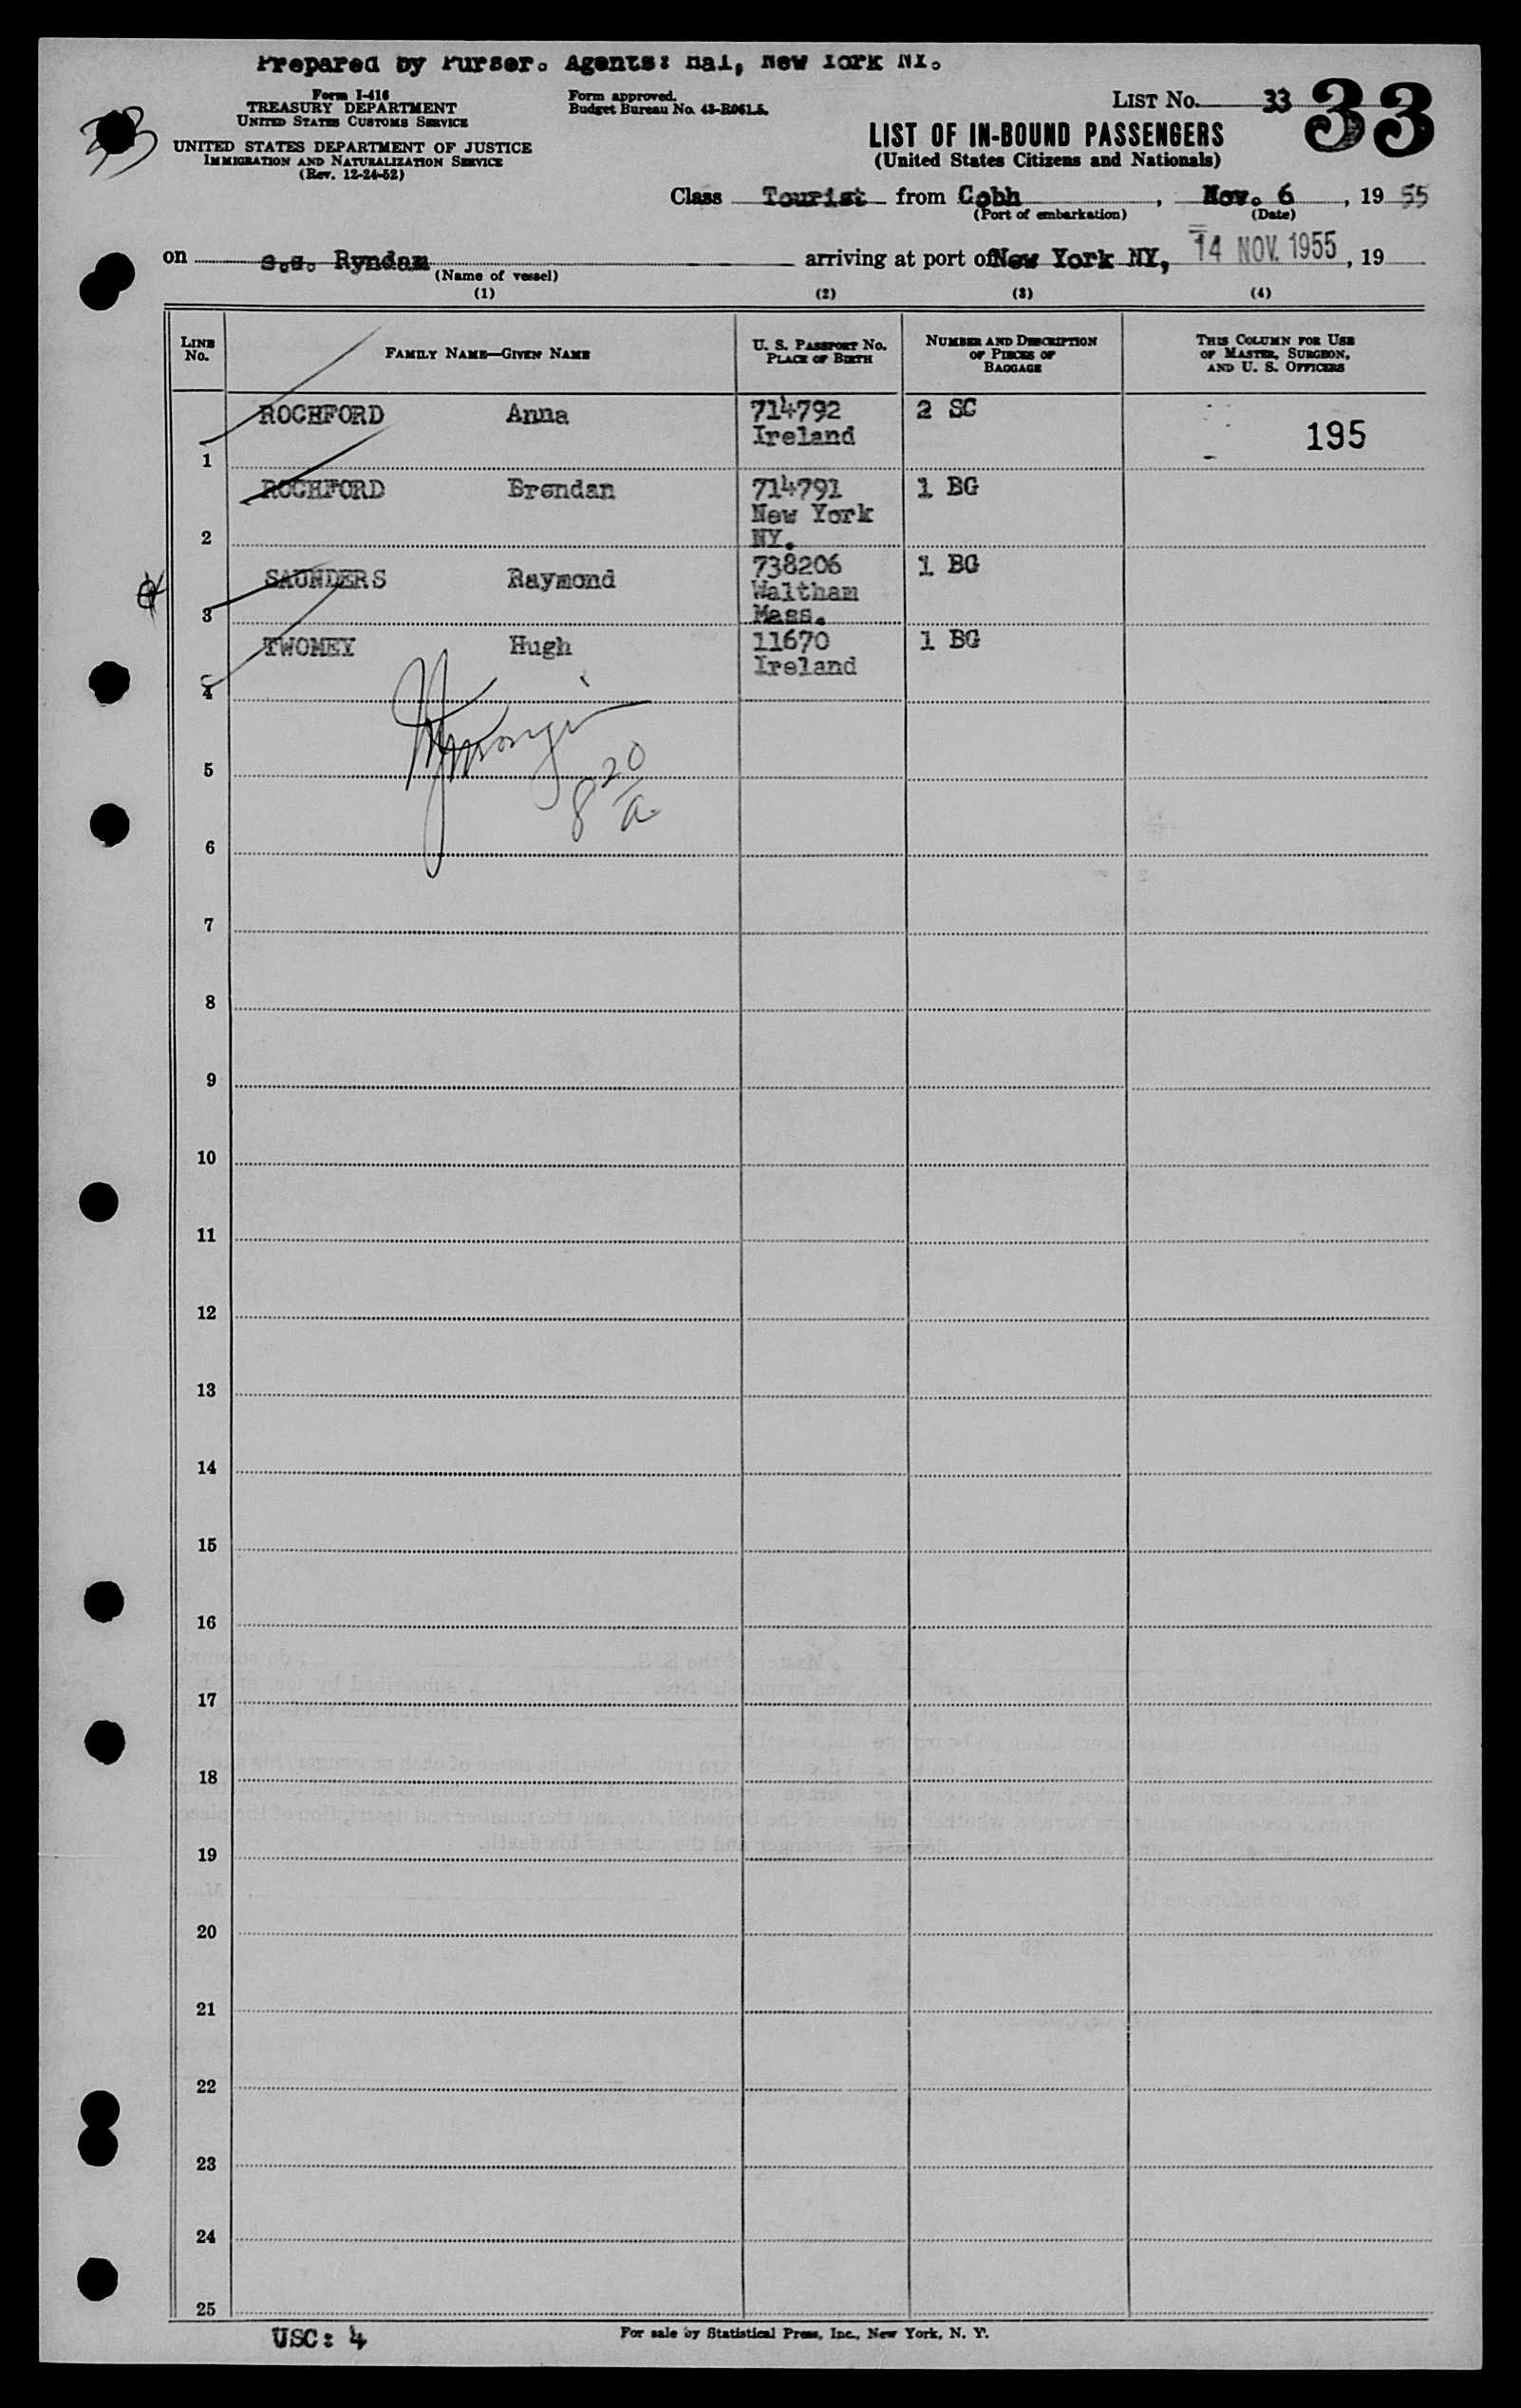 Prepared by Purser. Agents: Hal, New York NY.
Form I-416
TREASURY DEPARTMENT
UNITED STATES CUSTOMS SERVICE
UNITED STATES DEPARTMENT OF JUSTICE
IMMIGRATION AND NATURALIZATION SERVICE
(Rev. 12-24-52)
Form approved.
Budget Bureau No. 43-R061.5.
LIST No. 33 33
LIST OF IN-BOUND PASSENGERS
(United States Citizens and Nationals)
Class Tourist from Cobh, Nov. 6, 1955
(Port of embarkation) (Date)
on s.s. Ryndam arriving at port of New York NY, 14 NOV. 1955, 19
(Name of vessel)
(1) (2) (3) (4)
LINE No. FAMILY NAME—GIVEN NAME U. S. PASSPORT No. PLACE OF BIRTH NUMBER AND DESCRIPTION OF PIECES OF BAGGAGE THIS COLUMN FOR USE OF MASTER, SURGEON, AND U. S. OFFICERS
ROCHFORD Anna 714792 2 SC
Ireland 195
1
ROCHFORD Brendan 714791 1 BG
New York
2 NY.
SAUNDERS Raymond 738206 1 BG
Waltham
3 Mass.
TWOMEY Hugh 11670 1 BG
Ireland
4
5
8 20/a
6
7
8
9
10
11
12
13
14
15
16
17
18
19
20
21
22
23
24
25
USC: 4
For sale by Statistical Press, Inc., New York, N. Y.